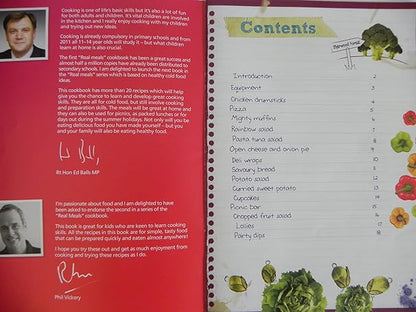 Cooking is one of life's basic skills but it's also a lot of fun
for both adults and children. It's vital children are involved
in the kitchen and I really enjoy cooking with my children
and trying out new ideas.
Cooking is already compulsory in primary schools and from
2011 all 11–14 year olds will study it – but what children
learn at home is also crucial.
The first "Real meals" cookbook has been a great success and
almost half a million copies have already been distributed to
secondary schools. I am delighted to launch the next book in
the "Real meals" series which is based on healthy cold food
ideas.
This cookbook has more than 20 recipes which will help
give you the chance to learn and develop great cooking
skills. They are all for cold food, but still involve cooking
and preparation skills. The meals will be great at home and
they can also be used for picnics, as packed lunches or for
days out during the summer holidays. Not only will you be
eating delicious food you have made yourself – but you
and your family will also be eating healthy food.
Rt Hon Ed Balls MP
I'm passionate about food and I am delighted to have
been asked to endorse the second in a series of the
"Real Meals" cookbook.
This book is great for kids who are keen to learn cooking
skills. All the recipes in this book are for simple, tasty food
that can be prepared quickly and eaten almost anywhere!
I hope you try these out and get as much enjoyment from
cooking and trying these recipes as I do.
Phil Vickery
Contents
Introduction 2
Equipment 3
Chicken drumsticks 4
Pizza 5
Mighty muffins 6
Rainbow salad 7
Pasta tuna salad 8
Open cheese and onion pie 9
Deli wraps 10
Savoury bread 11
Potato salad 12
Curried sweet potato 13
Cupcakes 14
Picnic bar 15
Chopped fruit salad 16
Lollies 17
Party dips 18